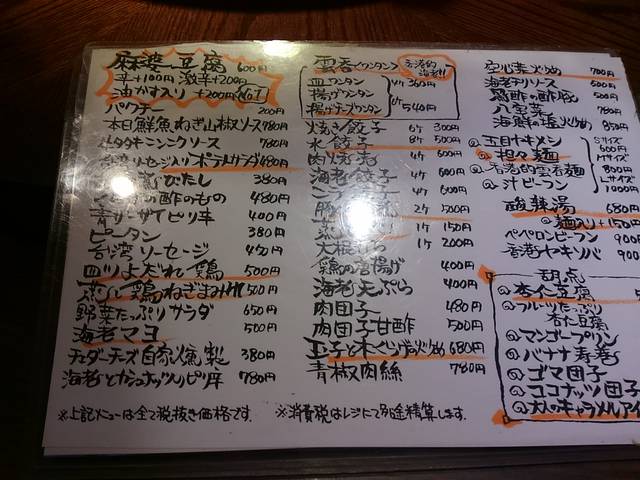 麻婆豆腐 600円
辛+100円 激辛+200円
油かす入り +200円 No.1
パクチー 200円
本日鮮魚ねぎ山椒ソース 780円
ニンニクソース 780円
ソーセージ入りポテトサラダ 480円
びたし 380円
酢のもの 480円
青ザーサイピリ辛 400円
ピータン 380円
台湾ソーセージ 450円
四川よだれ鶏 500円
蒸し鶏ねぎまみれ 500円
野菜たっぷりサラダ 650円
海老マヨ 500円
チェダーチーズ自家燻製 380円
海老とカシューナッツのピリ辛 780円
※上記メニューは全て税抜き価格です。
※消費税はレジにて別途精算します。
雲呑(ワンタン) 香港的海老!!
皿ワンタン
揚げワンタン 4ケ 360円
揚げチーズワンタン 6ケ 540円
焼き餃子 6ケ 300円
水餃子 8ケ 500円
肉焼売 4ケ 600円
海老餃子 4ケ 600円
4ケ 600円
2ケ 500円
1ケ 150円
大根もち 1ケ 200円
鶏の唐揚げ 400円
海老天ぷら 400円
肉団子 480円
肉団子甘酢 500円
玉子と木くらげの炒め 680円
青椒肉絲 780円
空心菜炒め 700円
海老チリソース 600円
酢豚 500円
八宝菜 780円
海鮮の塩炒め 850円
五目ヤキメン
担々麺
香港的雲呑麺
汁ビーフン
Sサイズ 600円
Mサイズ 800円
Lサイズ 1000円
酸辣湯 680円
麺入り +150円
ペペロンビーフン 900
香港ヤキソバ 900
甜点
杏仁豆腐
フルーツたっぷり
杏仁豆腐
マンゴープリン
バナナ春巻
ゴマ団子
ココナッツ団子
大人のキャラメルアイ